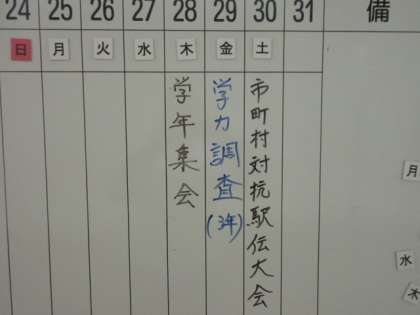 24 25 26 27 28 29 30 31 備
日 月 火 水 木 金 土
学年集会
学力調査(3年)
市町村対抗駅伝大会
月
水
木